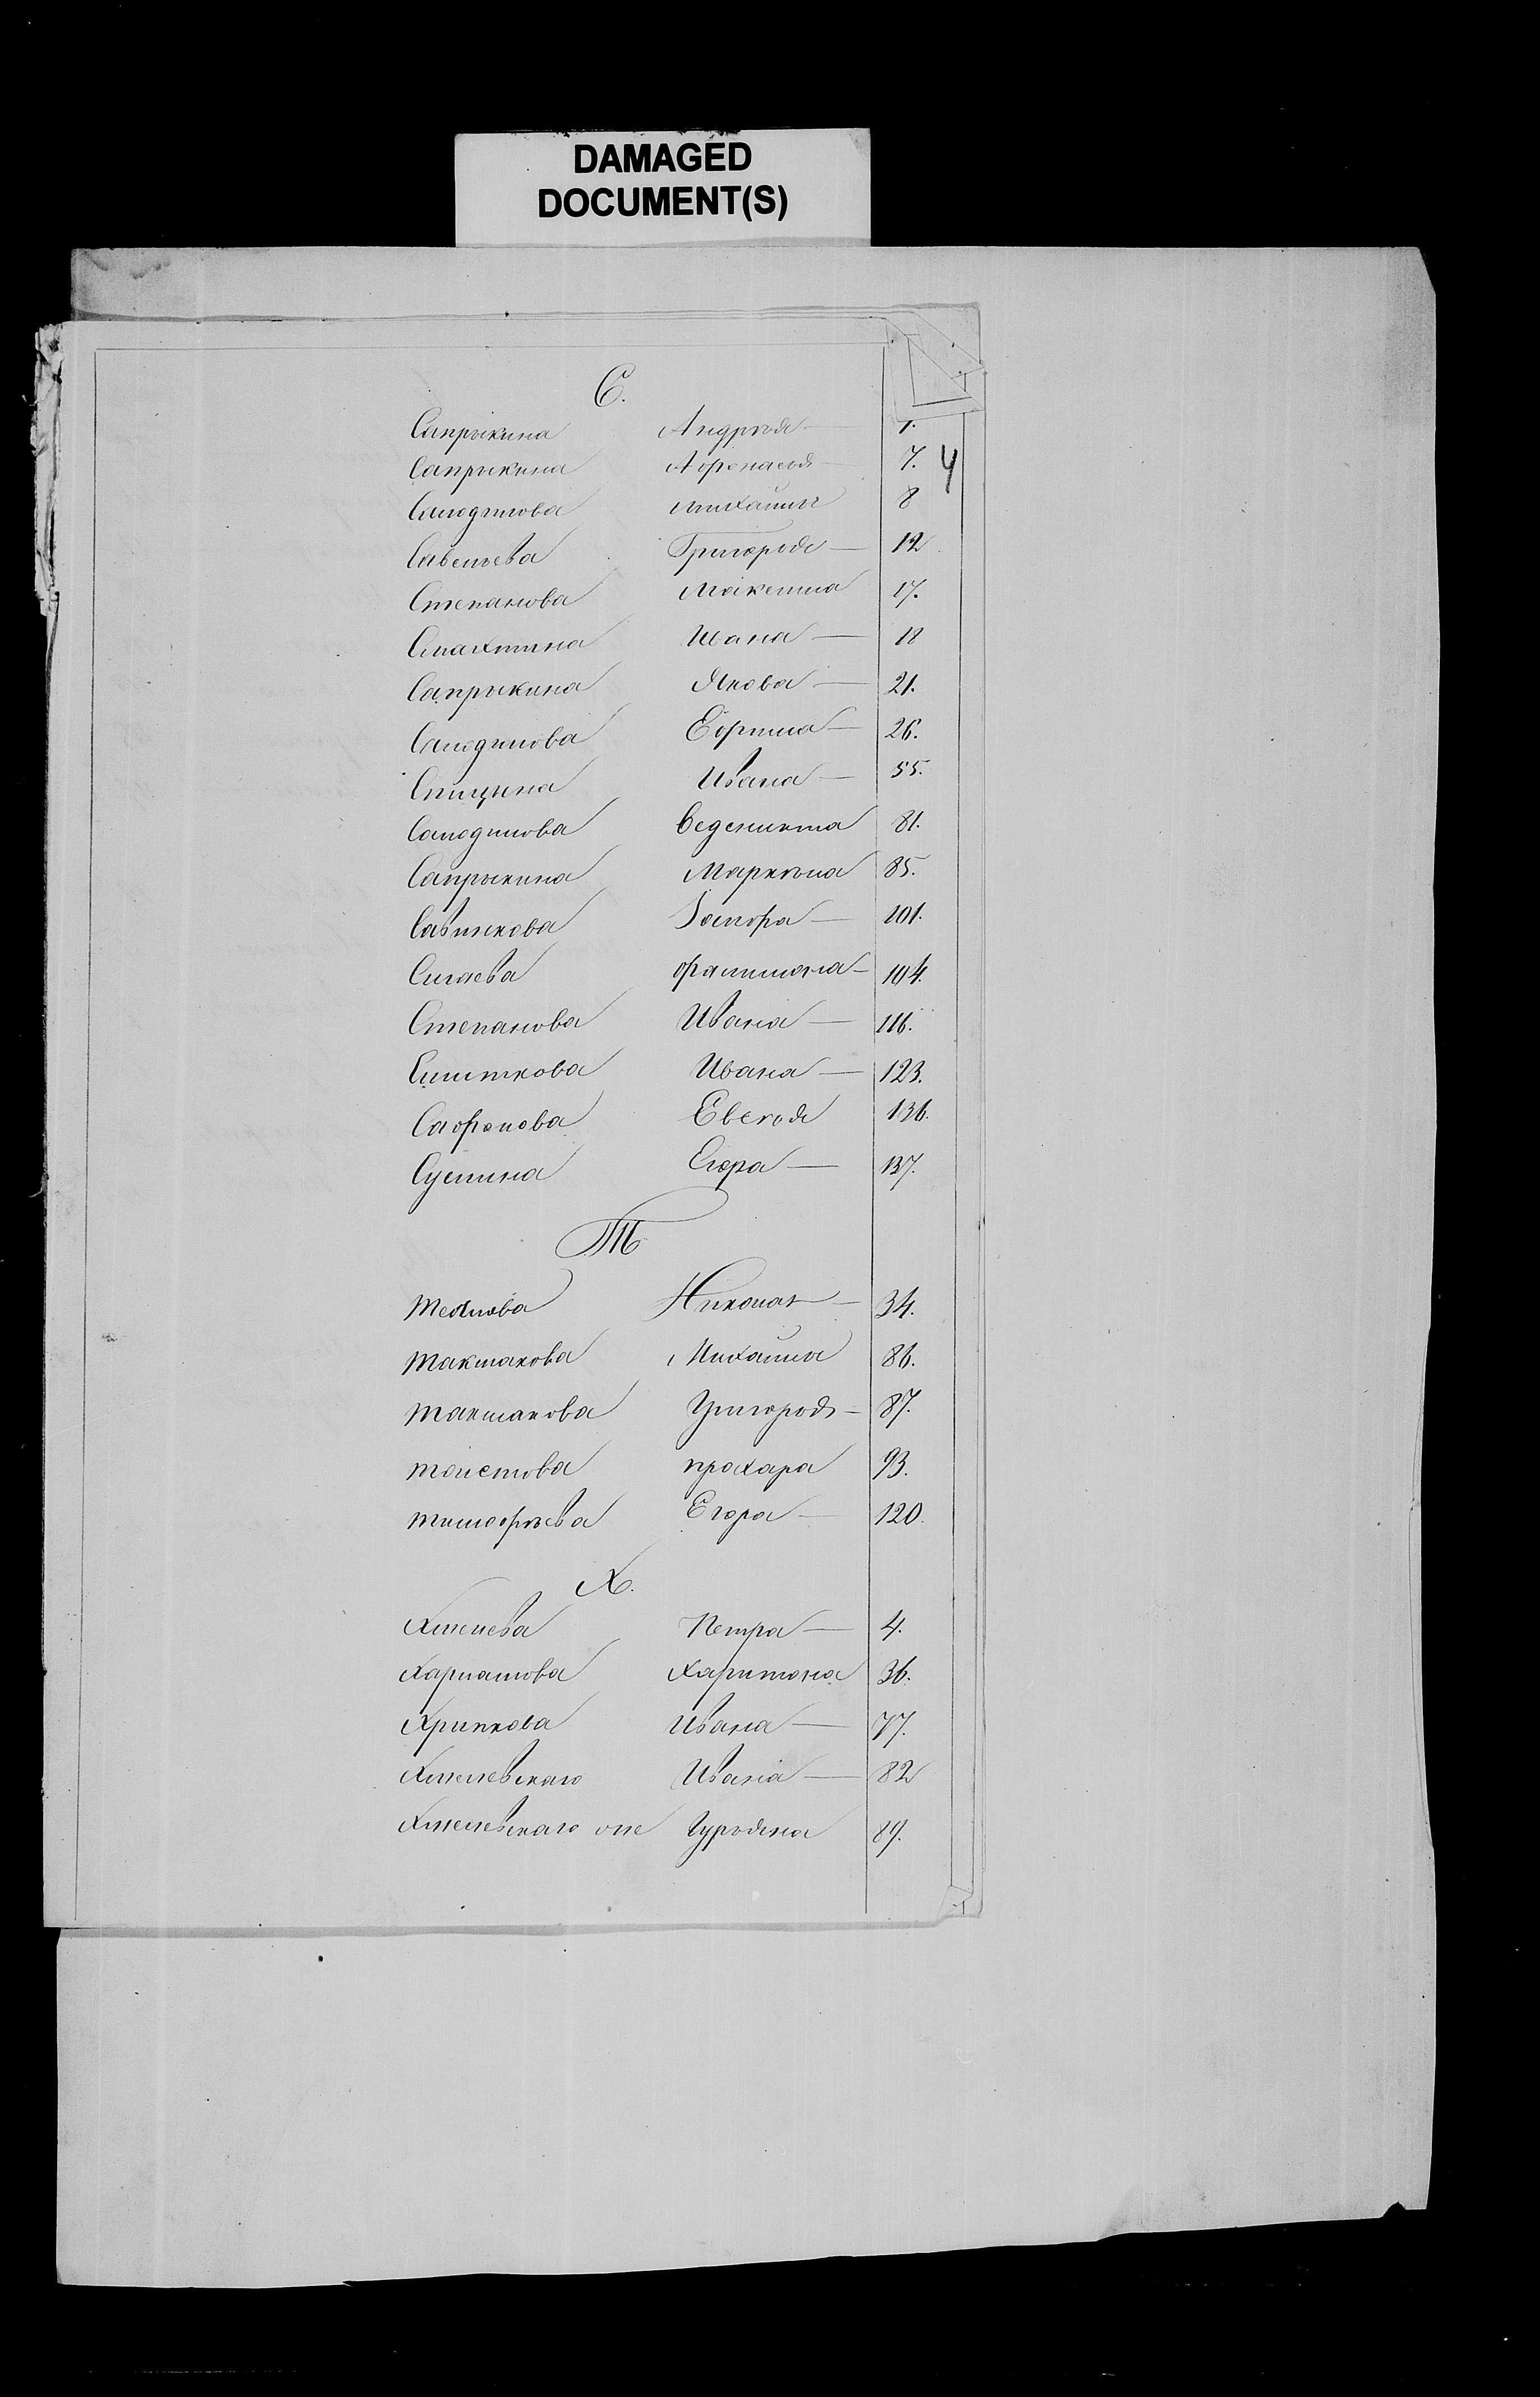 DAMAGED
DOCUMENT(S)
С.
Сапрыкина Андрѣя — 1.
Сапрыкина Афонасья — 7. 4
Самодумова михайлы 8
Савельева Григорья — 12
Степанова Максима 17.
Слахтина Ивана — 18
Сапрыкина Якова — 21.
Самодумова Ефима — 26.
Спицына Ивана — 55.
Самодумова Веденикта 81.
Сапрыкина Маркѣла 85.
Савинкова — 101.
Сигаева филимона — 104.
Степанова Ивана — 116.
Ивана — 123.
Сафонова Евсѣя 136.
Суслина Егора — 137.
Т
Теплова Николая — 34.
Такмакова Михайлы 86.
Такмакова Григорья — 87.
толстова прохара 93.
тимофѣева Егора — 120.
Х.
Хмелева Петра — 4.
Харламова Харитона 36.
Хрипкова Ивана — 77.
Хмелевскаго Ивана — 82
Хмелевскаго оне Гурьяна 89.